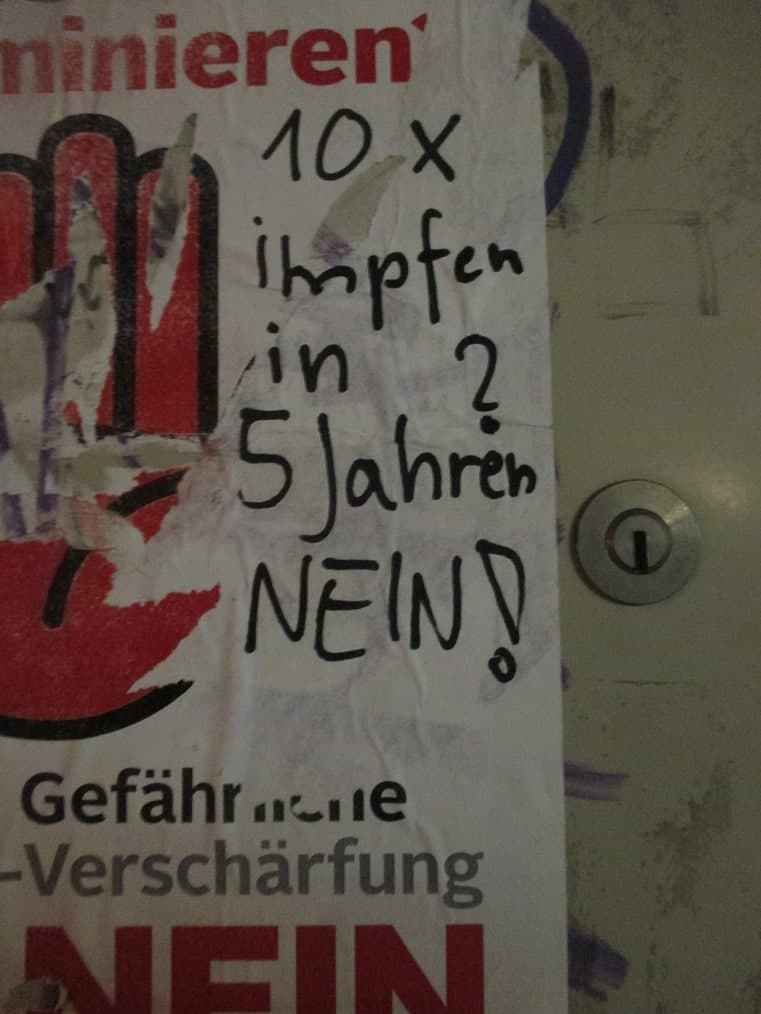 minieren
10 x
impfen
in ?
5 Jahren
NEIN!
Gefährliche
-Verschärfung
NEIN